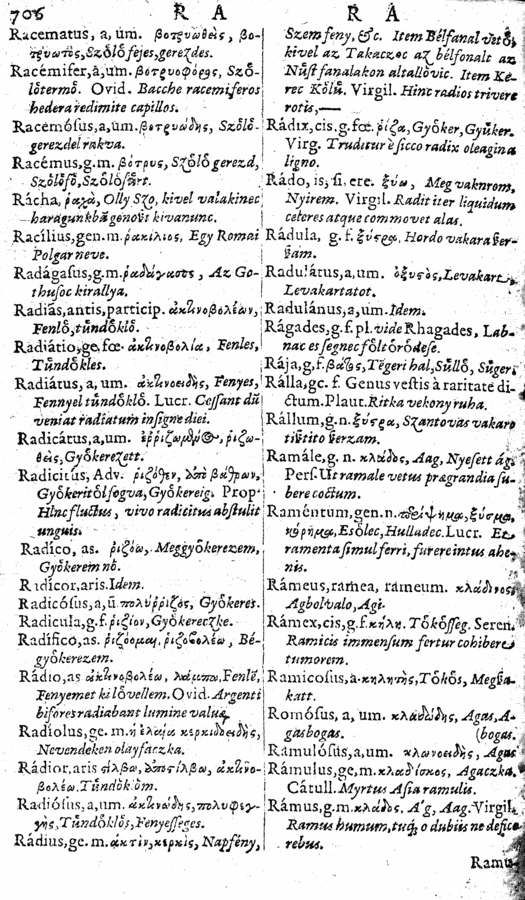 706 R A R A
Racematus, a, um. βοτρυωθεὶς, βο-
τρυωτὸς, Szŏlŏ fejes, gerezdes.
Racémifer, a, um. βοτρυοφόρος, Szŏ-
lŏtermŏ. Ovid. Bacche racemiferos
hedera redimite capillos.
Racemósus, a, um. βοτρυώδης, Szŏlŏ-
gerezdel rakva.
Racémus, g. m. βότρυς, Szŏlŏ gerezd,
Szŏlŏfŏ, Szŏlŏfúrt.
Rácha, ῥαχὰ, Olly Szo, kivel valakinec
haragunkbā gonoßt kivanunc.
Racílius, gen. m. ῥακίλιος, Egy Romai
Polgar neve.
Radágasus, g. m. ῥαδάγασος, Az Go-
thusoc kirallya.
Radiàs, antis, particip. ἀκτινοβολέων,
Fenlŏ, tŭndŏklŏ.
Radiátio, ge. fœ. ἀκτινοβολία, Fenles,
Tŭndŏkles.
Radiátus, a, um. ἀκτινοειδὴς, Fenyes,
Fennyel tŭndŏklŏ. Lucr. Cessant dū
veniat radiatum insigne diei.
Radicátus, a, um. ἐῤῥιζωμένος, ῥιζω-
θεὶς, Gyŏkerezett.
Radicitùs, Adv. ῥιζόθεν, ἀπὸ βάθρων,
Gyŏkeritŏl fogva, Gyŏkereig. Prop.
Hinc fluctus, vivo radicitus abstulit
unguis.
Radíco, as. ῥιζόω, Meggyŏkerezem,
Gyŏkereim nŏ.
Radícor, aris. Idem.
Radicósus, a, ū. πολύῤῥιζος, Gyŏkeres.
Radicula, g. f. ῥιζίον, Gyŏkereczke.
Radífico, as. ῥιζόομαι, ῥιζοβολέω, Bé-
gyŏkerezem.
Rádio, as ἀκτινοβολέω, λάμπω, Fenlĕ,
Fenyemet ki lŏvellem. Ovid. Argenti
bifores radiabant lumine valuæ.
Radíolus, ge. m. ἡ ἐλαία κερκιδοειδὴς,
Nevendeken olayfaczka.
Rádior, aris στίλβω, ἀποστίλβω, ἀκτινο-
βολέω. Tŭndŏklŏm.
Radiósus, a, um. ἀκτινώδης, πολυφεγ-
γὴς, Tŭndŏklŏs, Fenyesseges.
Rádius, ge. m. ἀκτὶν, κερκὶς, Napfény,
Szem feny, &c. Item Bélfanal vetŏ,
kivel az Takaczoc az bélfonalt az
Nŭst fanalakon altallŏvic. Item Ke-
rec Kŏlŭ. Virgil. Hinc radios trivere
rotis, —
Rádix, cis, g. fœ. ῥίζα, Gyŏker, Gyŭker.
Virg. Truditur è sicco radix oleagina
ligno.
Rádo, is, si, ere. ξύω, Meg vaknrom,
Nyirem. Virgil. Radit iter liquidum
celeres atque commovet alas.
Rádula, g. f. ξύστρα, Hordo vakara ßer-
ßam.
Radulátus, a, um. ὀξυτὸς, Levakart,
Levakartatot.
Radulánus, a, um. Idem.
Rágades, g. f. pl. vide Rhagades, Lab-
nac es segnec fŏltŏrŏdese.
Rája, g. f. βάτις, Tĕgeri hal, Sŭllŏ, Sŭger.
Rálla, ge. f. Genus vestis à raritate di-
ctum. Plaut. Ritka vekony ruha.
Rállum, g. n. ξύστρα, Szantovas vakaro
tißtito ßerzam.
Ramále, g. n. κλάδος, Aag, Nyesett ág.
Pers. Ut ramale vetus prægrandia su-
bere coctum.
Raméntum, gen. n. ἀπόψημα, ξύσμα,
κόρημα, Esŏlec, Hulladec. Lucr. Et
ramenta simul ferri, furere intus ahe-
nis.
Rámeus, ramea, rameum. κλάδινος
Agbol valo, Agi.
Rámex, cis, g. f. κήλη. Tŏkŏsseg. Seren.
Ramicis immensum fertur cohibere
tumorem.
Ramicosus, a. κηλητὴς, Tŏkŏs, Megßa-
katt.
Romósus, a, um. κλαδώδης, Agas, A-
gasbogas. (bogas.
Ramulósus, a, um. κλωνοειδὴς, Agas
Rámulus, ge, m. κλαδίσκος, Agaczka.
Cátull. Myrtus Asia ramulis.
Rámus, g. m. κλάδος, A'g, Aag. Virgil.
Ramus humum, tuq; o dubiis ne defice
rebus.
Ramu-